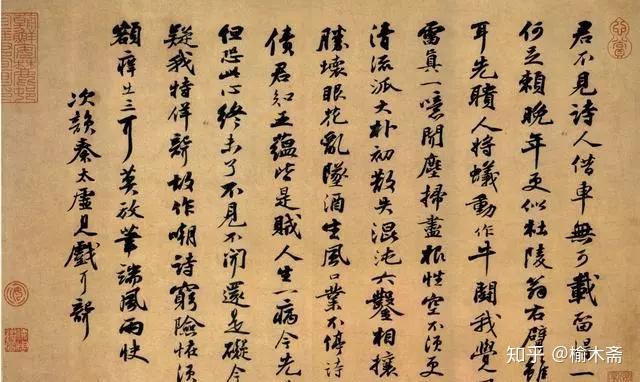 君不見詩人借車無可載留得一
何足賴晚年更似杜陵翁右臂雖
耳先聵人將蟻動作牛鬪我覺
雷真一噫聞塵掃盡根性空不須更
清流派大朴初散失混沌六鑿相攘
勝壞眼花亂墜酒生風口業不停詩
債君知五蘊皆是賊人生一病今先
但恐此心終未了不見不聞還是礙今
疑我特佯聾故作嘲詩窮險怪須
額癢出三耳莫放筆端風雨快
次韻秦太虛見戲耳聾
知乎 @榆木斋